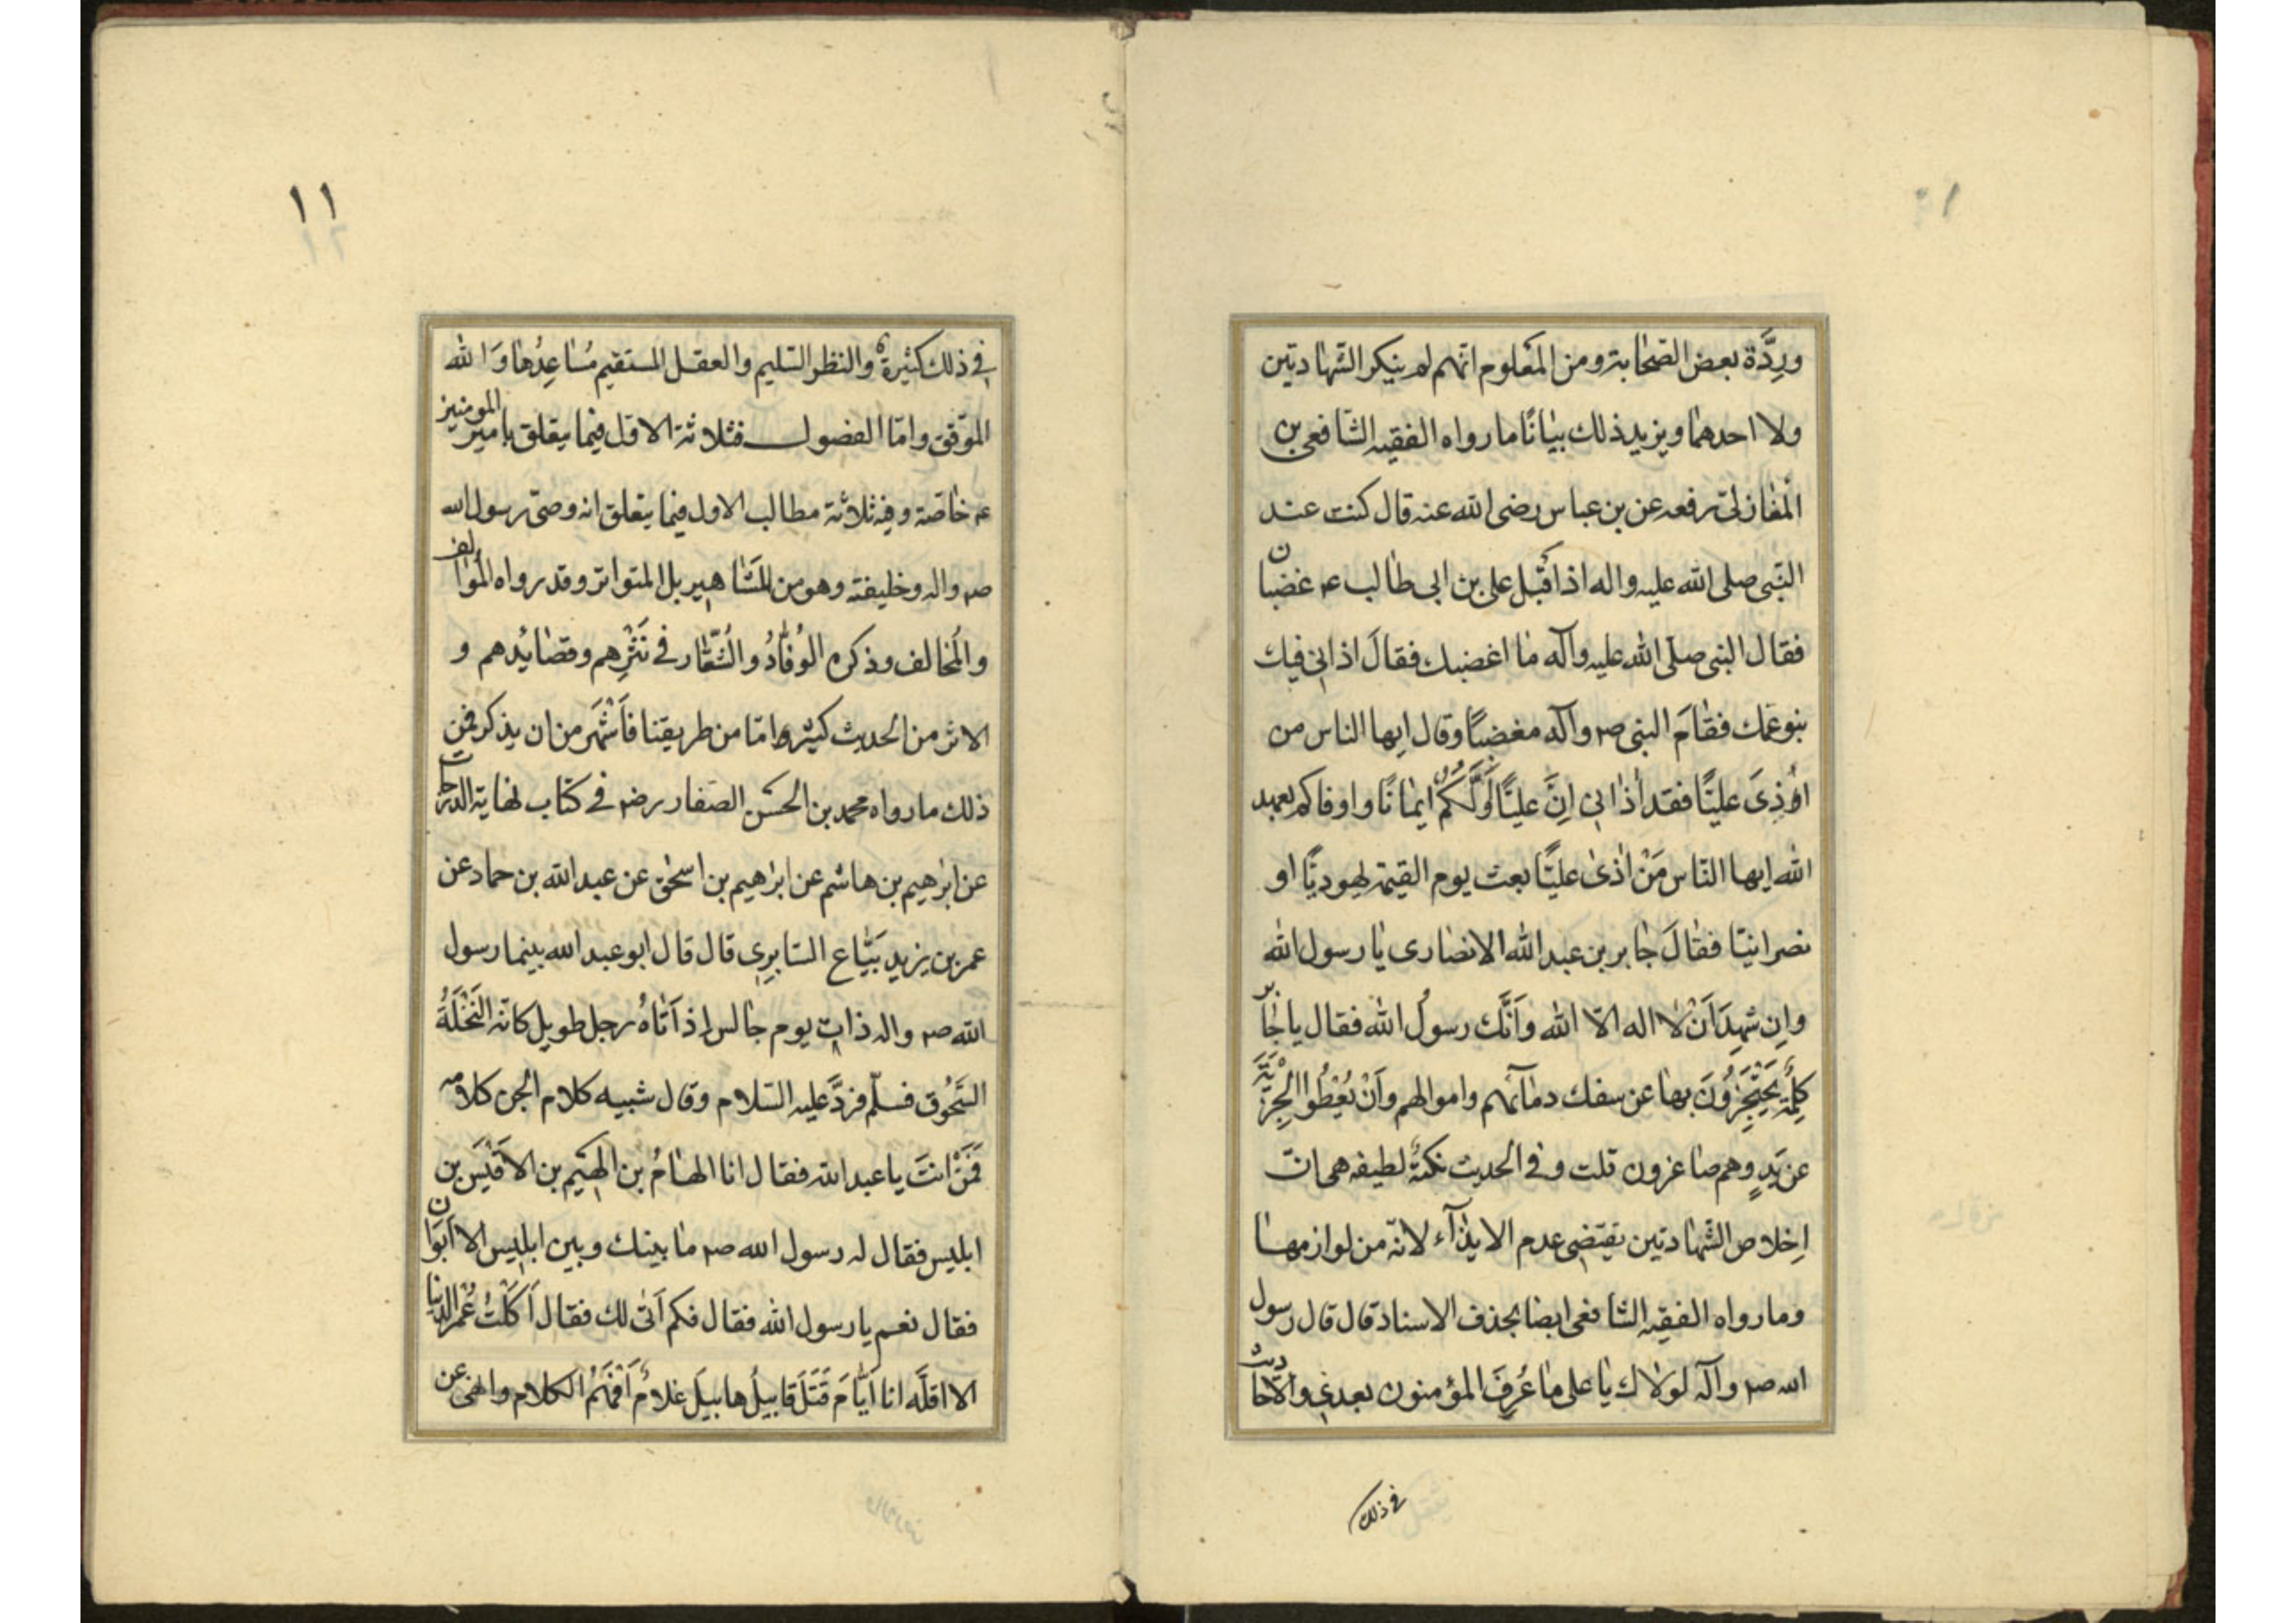 وردَّة بعض الصحابة ومن المعلوم انهم لم ينكر الشهادتين
ولا احدهما ويزيد ذلك بيانًا ما رواه الفقيه الشافعى بن
المغازلى رفعه عن بن عباس رضى الله عنه قال كنت عند
النبى صلى الله عليه واله اذ اقبل على بن ابى طالب ع غضبان
فقال النبى صلى الله عليه وآله ما اغضبك فقال اذانى فيك
بنو عمك فقام النبى ص وآله مغضبًا وقال ايها الناس من
اوذى عليًّا فقد اذانى انَّ عليًّا اوَّلكم ايمانًا واوفاكم بعهد
الله ايها النّاس مَنْ اذىٰ عليًّا بعث يوم القيمة يهوديًّا او
نصرانيّا فقالَ جابر بن عبد الله الانصارى يا رسول الله
وان شهد اَنْ لا اله الّا الله وَاَنَّك رسولُ الله فقال يا جابر
كلِمَةٌ يَحْتَجِزُونَ بها عن سفك دمآئهم واموالهم وَاَنْ يُعْطُوا الْجِزْيَةَ
عن يَدٍ وهم صاغرون قلت وفى الحديث نكتةٌ لطيفه هى انّ
اِخلاص الشّهادتين يقتضى عدم الايذآء لانّه من لوازمها
وما رواه الفقيه الشافعى ايضا بحذف الاسناد قال قال رسول
الله ص وآله لولاك يا على ما عُرِفَ المؤمنون بعدى والاحاديث
فى ذلك
١١
فى ذلك كثيرةٌ والنظر السّليم والعقل المستقيم مُساعِدُها وَالله
الموّفق وامّا الفصول فثلاثة الاول فيما يتعلق بامير المومنين
ع خاصّة وفيه ثلاثة مطالب الاول فيما يتعلق انه وصىّ رسول الله
ص واله وخليفته وهو من المَشاهير بل المتواتر وقد رواه المُوالف
والمُخالف وذكره الوُفّادُ والشُّعّار فى نَثْرِهم وقصائدهم و
الاثر من الحديث كثيره امّا من طريقنا فاَشْهَر من ان يذكر فمن
ذلك ما رواه محمد بن الحسن الصفار رضه فى كتاب نهاية الدرجات
عن ابرٰهيم بن هاشم عن ابرٰهيم بن اسحٰق عن عبد الله بن حماد عن
عمر بن يزيد بَيَّاع السّابِرِى قال قال ابو عبد الله بينما رسول
الله ص واله ذات يوم جالس اِذ اَتاهُ رجل طويل كانّه النَّخْلَةُ
السَّحُوق فسلّم فردَّ عليه السّلام وقال شبيه كلام الجن كلامه
فَمَنْ انتَ يا عبد الله فقال انا الهامُ بن الهِيَيم بن الاقَيَس بن
ابليس فقال له رسول الله ص ما بينك وبين ابليس الا اَبَوَان
فقال نعم يا رسول الله فقال فكم اَتىٰ لك فقال اَكَلْتُ عُمْر الدنيا
الا اقلَّه انا اَيّامَ قَتَلَ قابيلُ هابيلَ غلامٌ اَفْهَمُ الكلام وانهىٰ عن